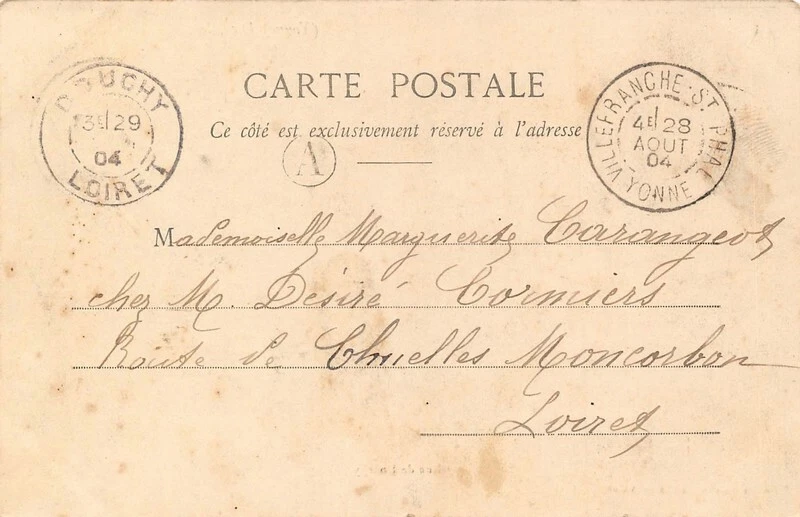 CARTE POSTALE
Ce côté est exclusivement réservé à l'adresse
DOUCHY
3E 29
04
LOIRET
A
VILLEFRANCHE-ST PHAL
4E 28
AOUT
04
YONNE
Mademoiselle Marguerite Carangeot
chez M. Désiré Cormiers
Route de Chuelles Moncorbon
Loiret